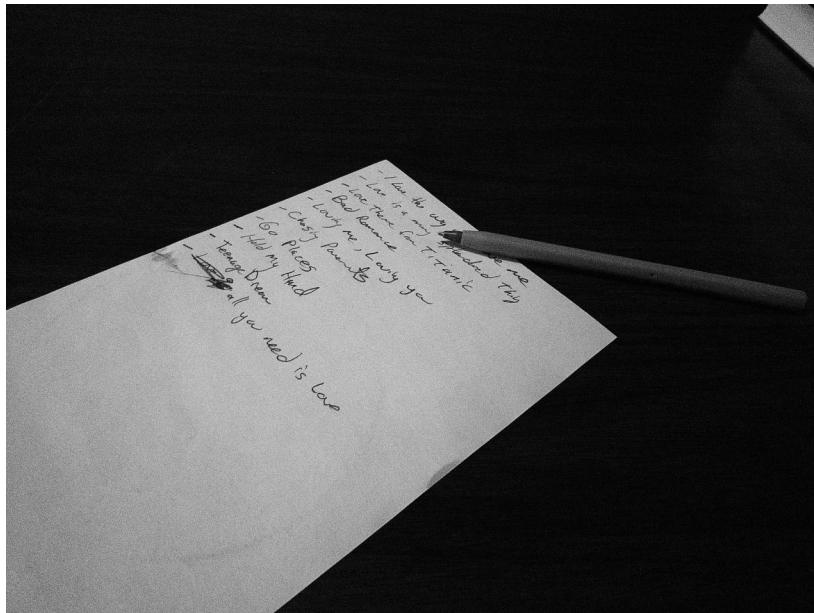 - I love the way me
- Love is a many splendored thing
- Love Theme from TiTanic
- Bad Romance
- Loving me, Loving you
- Ghostly Parents
- Go Places
- Hold My Hand
- Teenage Dream
- all you need is Love